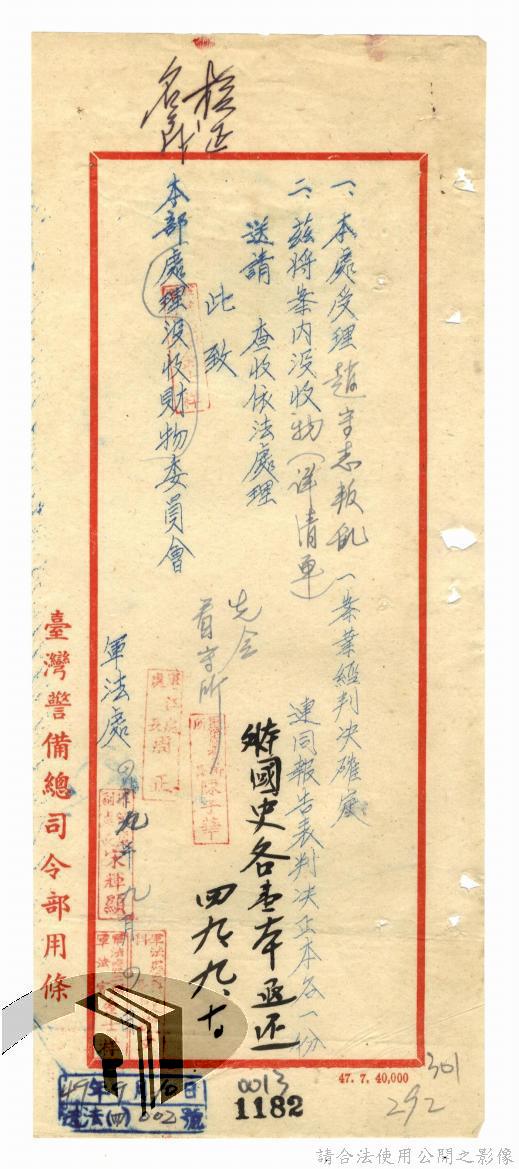 核正
名冊
一、本處受理趙守志叛亂一案業經判決確定
二、茲將案內沒收物(詳清單)連同報告表判決正本各一份
送請 查收依法處理
此致
本部處理沒收財物委員會
先会
看守所
軍法處
四九年九月
國史各壹本退還
四九、九、十
臺灣警備總司令部用條
49年9月10日
法(四)002號
0013
1182
47. 7. 40,000
301
292
請合法使用公開之影像